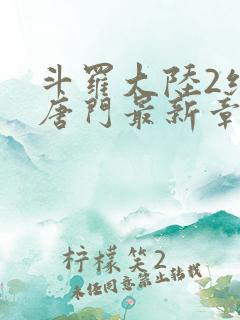 斗羅大陸2
唐門最新章
柠檬笑2
未经同意禁止转载